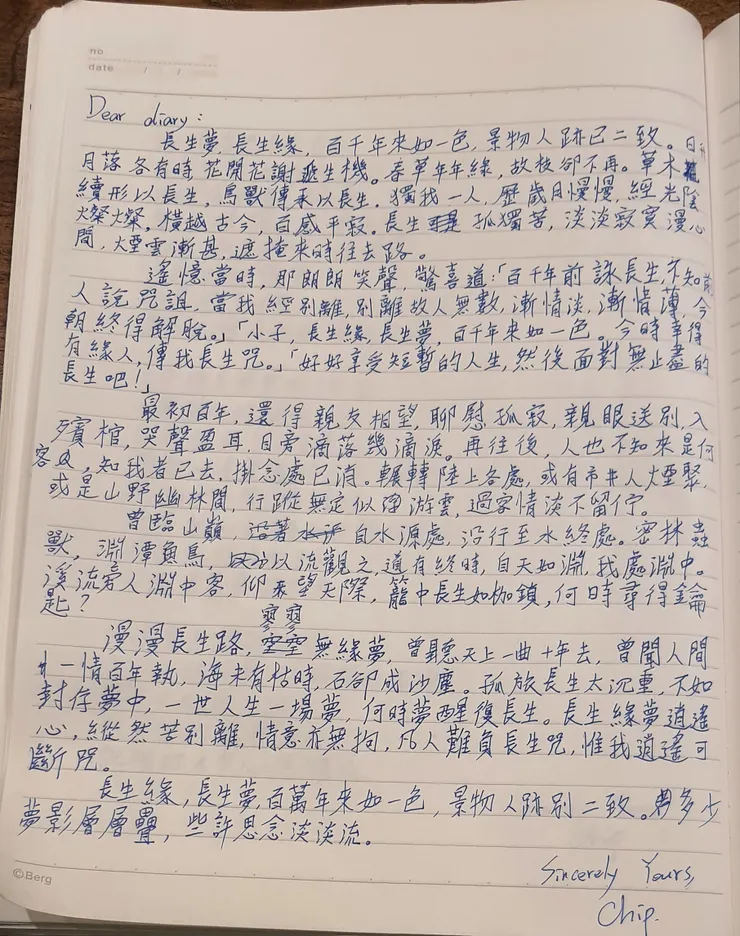 no
date / /
Dear diary:
長生夢長生緣，百千年來如一色，景物人跡已二致。日升
月落各有時 花開花謝逝生機。春草年年綠，故枝卻不再。草木
續形以長生，鳥獸傳承以長生，獨我一人，歷歲月慢慢，經光陰
燦燦。橫越古今，百感平寂。長生 孤獨苦，淡淡寂寞漫心
間，煙雲漸甚，遮掩來時往去路。
遙憶當時，那朗朗笑聲，驚喜道：「百千年前詠長生，不知前
人說咒詛，當我經別離，別離故人無數，漸情淡，漸情薄，今
朝終得解脫。」「小子，長生緣，長生夢，百千年來如一色。今時幸得
有緣人，傳我長生咒。」「好好享受短暫的人生，然後面對無止盡的
長生吧！」
最初百年，還得親友相望，聊慰孤寂，親眼送別，入
殯棺，哭聲盈耳，目旁滴落幾滴淚。再往後，人也不知來是何
客，知我者已去，掛念處已消。輾轉陸上各處，或有市井人煙聚，
或是山野幽林間，行蹤無定似浮游雲，過客情淡不留佇。
曾臨山巔， 自水源處，沿行至水終處。密林蟲
獸，淵潭魚鳥， 以流觀之，道有終時，自天如淵，我處淵中。
溪流旁人淵中客，仰望天際，籠中長生如枷鎖，何時尋得鑰
匙？
寥寥
漫漫長生路，空空無緣夢，曾聽天上一曲十年去，曾聞人間
一情百年執，海未有枯時，石卻成沙塵。孤旅長生太沉重，不如
封存夢中，一世人生一場夢，何時夢醒復長生。長生緣夢逍遙
心，縱然苦別離，情意亦無拘，凡人難負長生咒，惟我逍遙可
斷咒。
長生緣，長生夢，百萬年來如一色，景物人跡別二致。多少
夢影層層疊，些許思念淡淡流。
Sincerely Yours,
Chip.
©Berg